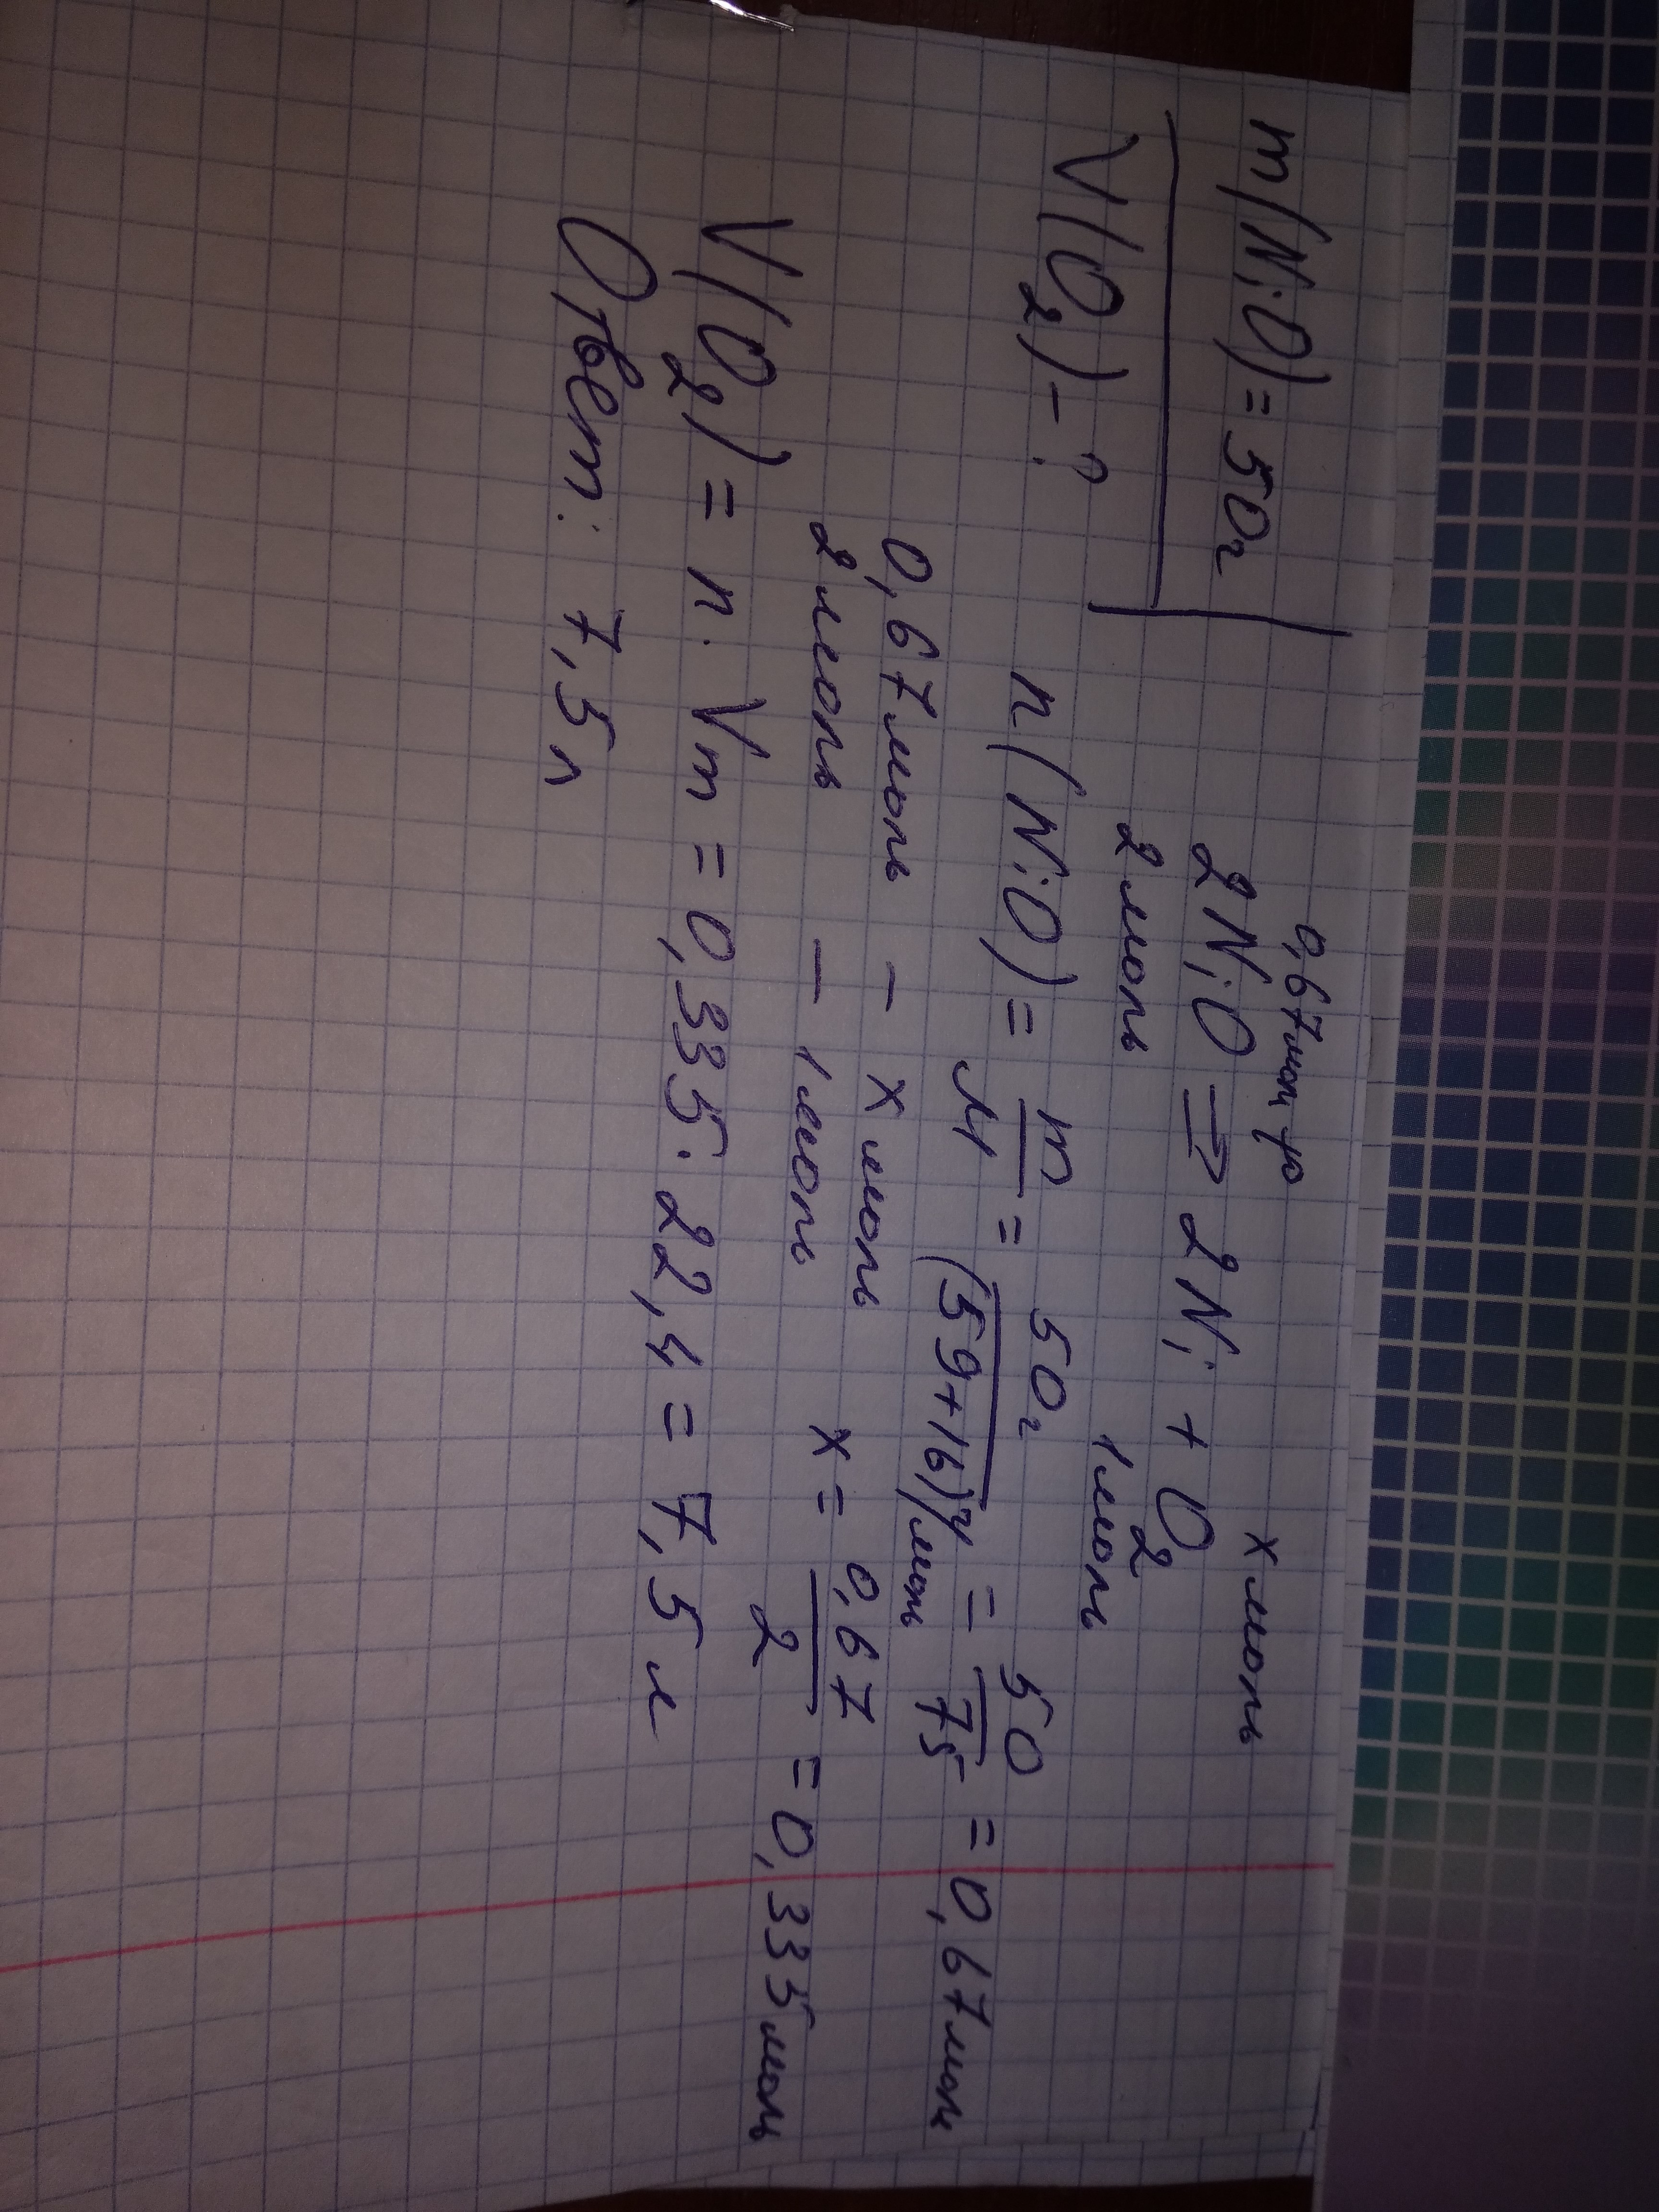 m(NiO)=50г
0,67моль x моль
2NiO ⇒ 2Ni + O₂
2 моль 1 моль
V(O₂) - ?
n(NiO) = m/M = 50г/(59+16)г/моль = 50/75 = 0,67моль
0,67моль – x моль
2 моль – 1 моль
x = 0,67/2 = 0,335моль
V(O₂) = n · Vm = 0,335 · 22,4 = 7,5 л
Ответ: 7,5 л